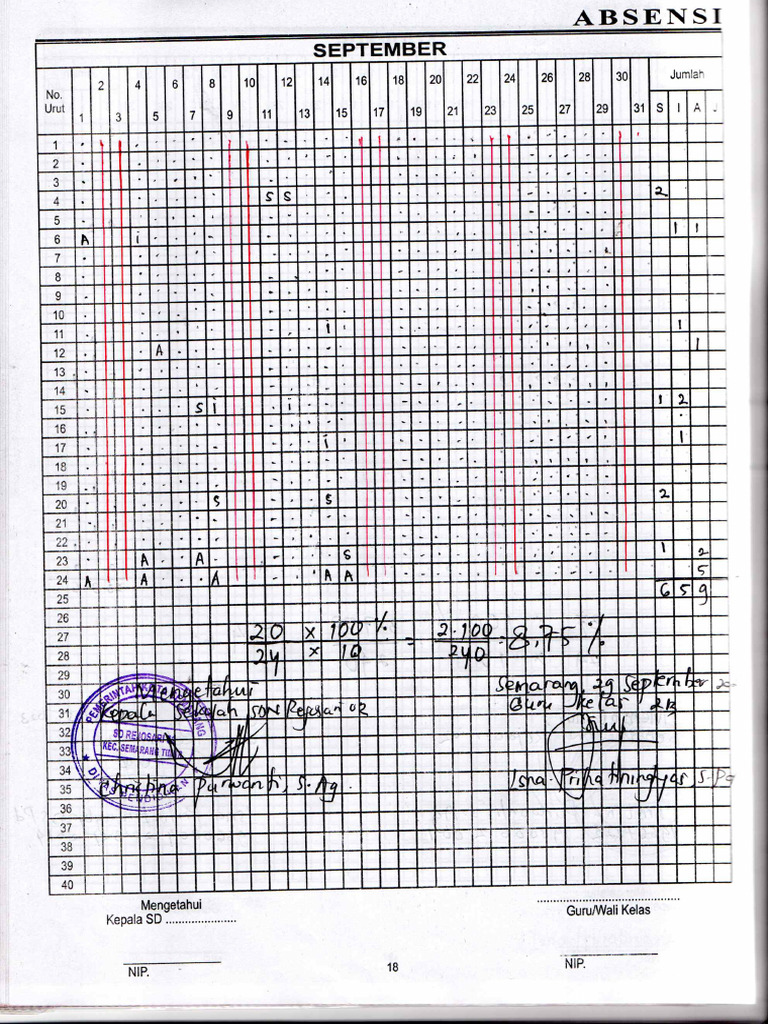 ABSENSI
SEPTEMBER
No. Urut 1 2 3 4 5 6 7 8 9 10 11 12 13 14 15 16 17 18 19 20 21 22 23 24 25 26 27 28 29 30 31 Jumlah
S I A J
1
2
3
4 S S 2
5
6 A i 1 1
7
8
9
10
11 i 1
12 A 1
13
14
15 S i i 1 2
16
17 i 1
18
19
20 S S 2
21
22
23 A A S 1 2
24 A A A A A 5
25 6 5 9
26
27 20 x 100 % = 2.100 = 8,75 %
28 24 x 10 240
29 Mengetahui Semarang 29 September
30 Kepala Sekolah SDN Rejosari 02 Guru Kelas 2B
31
32
33
34 Christina Purwanti, S.Ag. Isna Prihatiningyas, S.Pd
35
36
37
38
39
40
PEMERINTAH KOTA SEMARANG
SD REJOSARI
KEC. SEMARANG TIMUR
DINAS PENDIDIKAN
Mengetahui
Kepala SD ......................
Guru/Wali Kelas
NIP.
18
NIP.